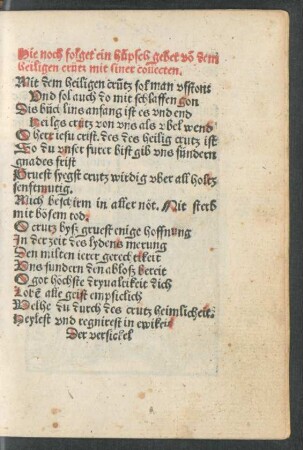 Hie noch folget ein hüpsch gebet vō dem
heiligen crütz mit siner collecten.
Mit dem heiligen crütz sol man vfston
Vnd sol auch do mit schlaffen gon
Dis büch lins anfang ist es vnd end
Heilges crütz von vns als vbel wend
O herr iesu crist. des des heilig crutz ist
So du vnser furer bist gib vns sündern
gnades frist
Gruest syest crutz wirdig vber all holtz
senftmutig.
Mich beschirm in aller nöt. Nit sterb
mit bösem tod.
O crutz bysz gruest enige hoffnung
In der zeit des lydens merung
Den milten ierer gerechtikeit
Vns sundern den abloß bereit
O got höchste dryualtikeit dich
Lobē alle geist empfiehlich
Welhe du durch des crutz heimlicheit
Heylest vnd regnirest in ewikeit
Der versickel